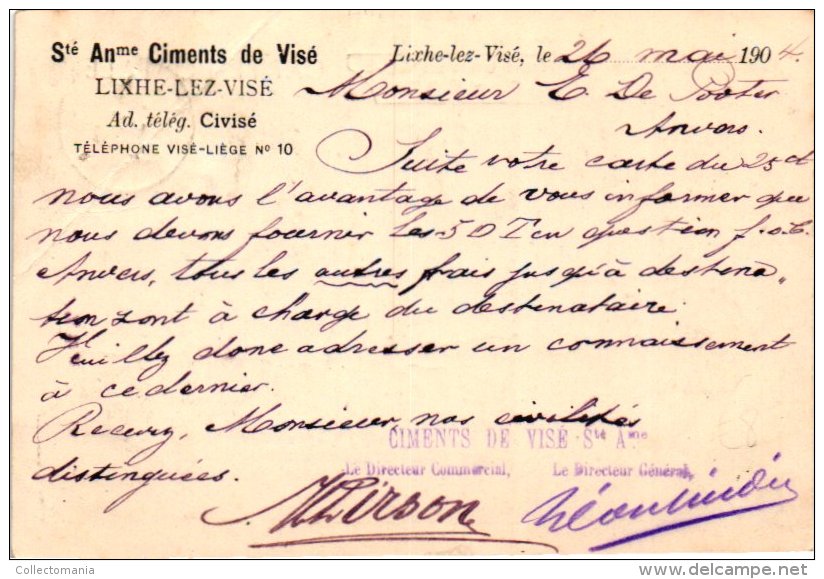 Sté Anme Ciments de Visé
LIXHE-LEZ-VISÉ
Ad. télég. Civisé
TÉLÉPHONE VISÉ-LIÈGE No 10
Lixhe-lez-Visé, le 26 mai 1904.
Monsieur E. De Pooter
Anvers.
Suite votre carte du 25 ct
nous avons l'avantage de vous informer que
nous devons fournir les 50 T en question f.o.b.
Anvers, tous les autres frais jusqu'à destina„
tion sont à charge du destinataire.
Veuillez donc adresser un connaissement
à ce dernier.
Recevez, Monsieur, nos civilités
distinguées.
CIMENTS DE VISÉ Sté Ame
Le Directeur Commercial, Le Directeur Général,
© Collectomania
delcampe.net